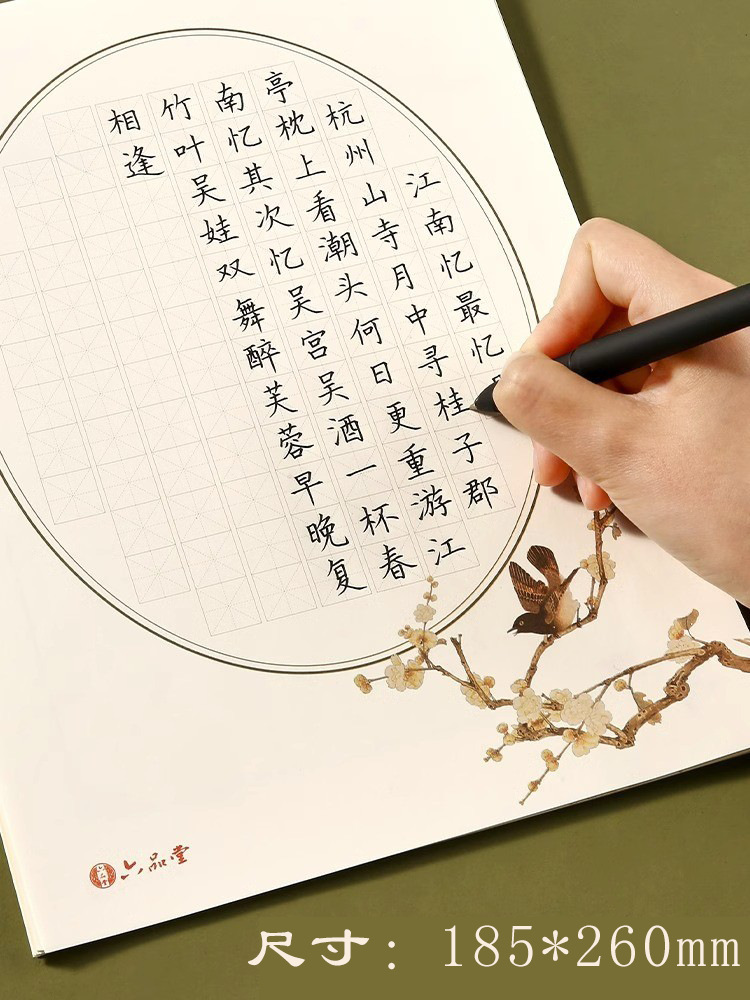 江南忆最忆
杭州山寺月中寻桂子郡
亭枕上看潮头何日更重游江
南忆其次忆吴宫吴酒一杯春
竹叶吴娃双舞醉芙蓉早晚复
相逢
六品堂
尺寸：185*260mm